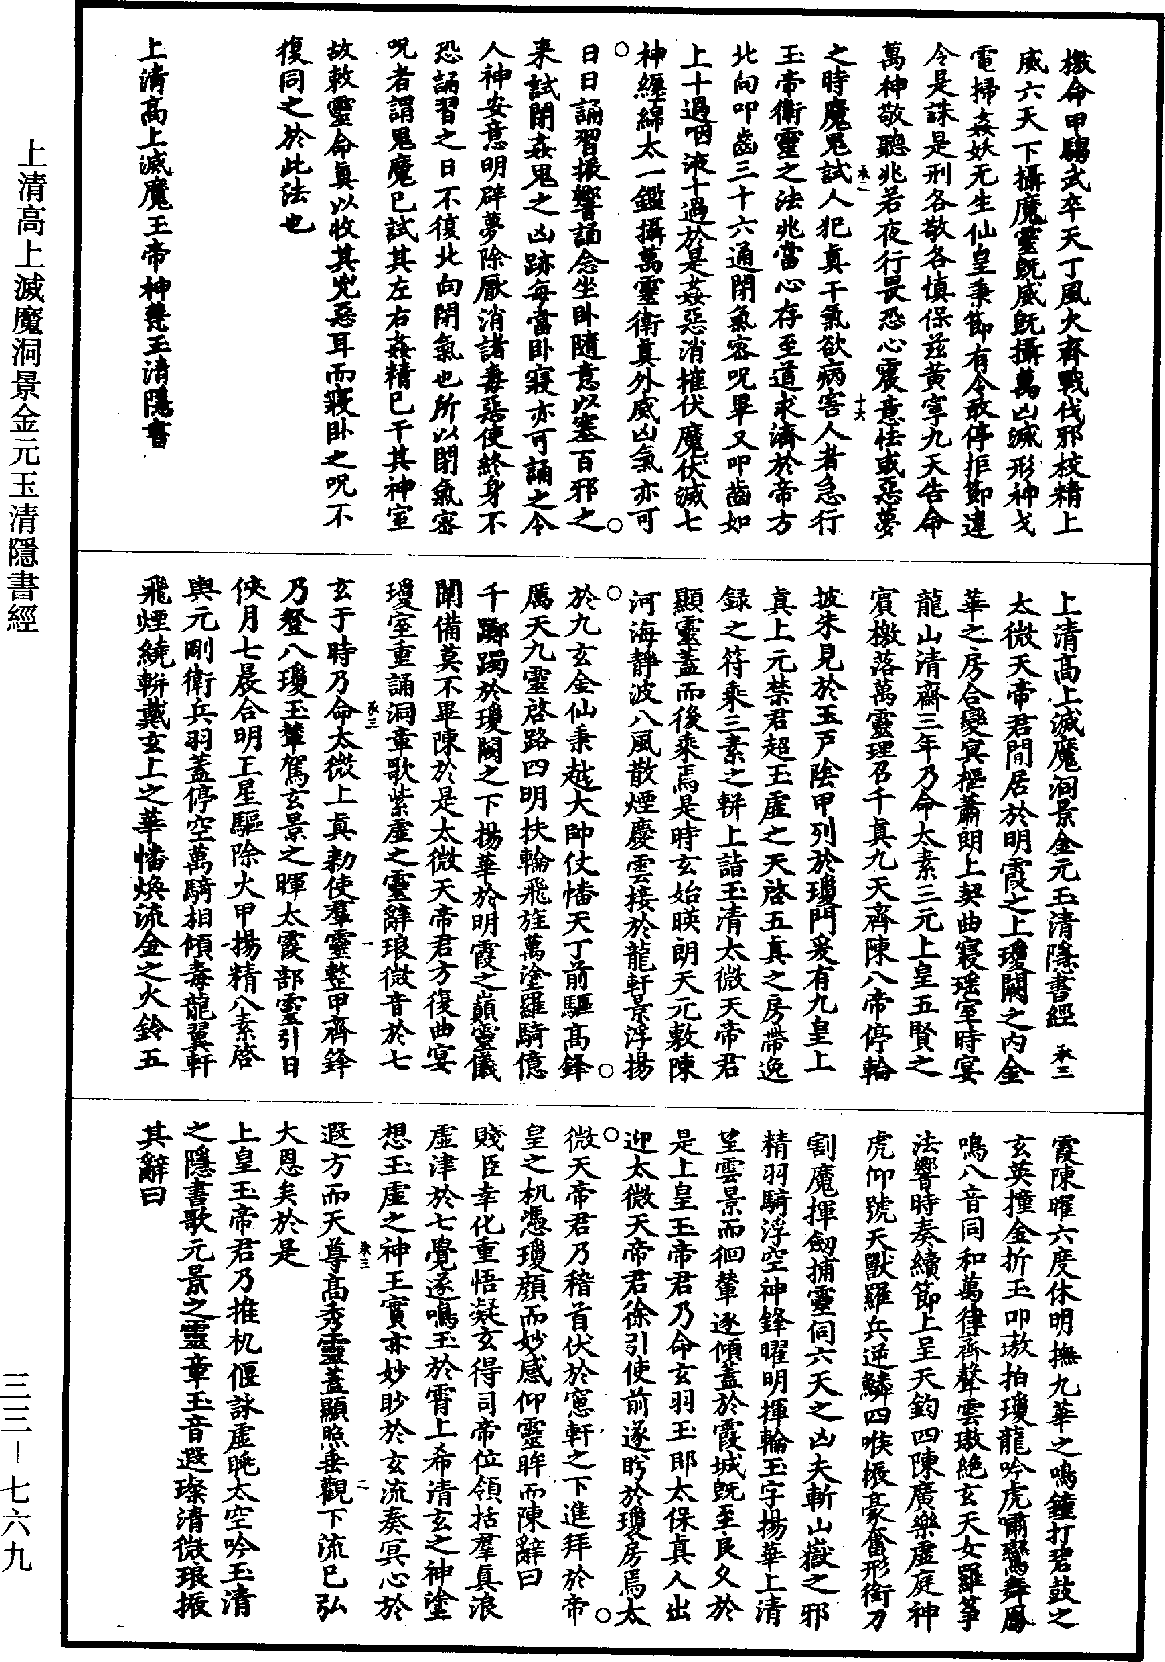 檄命甲騶武卒天丁風火齊戰伐邪校精上
威六天下攝魔靈既威既攝萬凶滅形神戈
電掃姦妖无生仙皇秉節有令敢停拒節違
令是誅是刑各敬各慎保茲黃寧九天告命
萬神敬聽兆若夜行畏恐心震意怯或惡夢
之時魔鬼試人犯真干氣欲病害人者急行
玉帝衛靈之法兆當心存至道求濟於帝方
北向叩齒三十六通閉氣密呪畢又叩齒如
上十過咽液十過於是姦惡消摧伏魔伏滅七
神纏綿太一鑑攝萬靈衛真外威凶氣亦可
日日誦習振響誦念坐卧隨意以塞百邪之
來試閉姦鬼之凶跡每當卧寢亦可誦之令
人神安意明辟夢除厭消諸毒惡使終身不
恐誦習之日不復北向閉氣也所以閉氣密
呪者謂鬼魔已試其左右姦精已干其神室
故敕靈命真以收其兇惡耳而寢卧之呪不
復同之於此法也
上清高上滅魔玉帝神慧玉清隱書
上清高上滅魔洞景金元玉清隱書經 承三
太微天帝君閒居於明霞之上瓊闕之內金
華之房合變冥樞蕭朗上契曲寢瑤室時宴
龍山清齋三年乃命太素三元上皇五賢之
賓檄落萬靈理召千真九天齊陳八帝停輪
披朱見於玉戶陰甲列於瓊門爰有九皇上
真上元禁君超玉虛之天啓五真之房帶逸
錄之符乘三素之軿上詣玉清太微天帝君
顯靈蓋而後乘焉是時玄始暎朗天元敷陳
河海靜波八風散煙慶雲接於龍軒景浮揚
於九玄金仙秉越大帥仗幡天丁前驅高鋒
厲天九靈啓路四明扶輪飛旌萬塗羅騎億
千躑躅於瓊闕之下揚華於明霞之巔靈儀
闡備莫不畢陳於是太微天帝君方復曲宴
瓊室重誦洞章歌紫虛之靈辭琅微音於七
玄于時乃命太微上真勑使羣靈整甲齊鋒
乃登八瓊玉輦駕玄景之暉太霞部靈引日
俠月七晨合明五星驅除火甲揚精八素啓
輿元剛衛兵羽蓋停空萬騎相傾毒龍翼軒
飛煙繞軿戴玄上之華幡煥流金之火鈴五
霞陳曜六度休明撫九華之鳴鐘打碧鼓之
玄英撞金折玉叩璈拍瓊龍吟虎嘯鸞舞鳳
鳴八音同和萬律齊聲雲璈絕玄天女羅箏
法響時奏續節上呈天鈞四陳廣樂虛庭神
虎仰號天獸羅兵逆鱗四喉振豪奮形銜刀
割魔揮劒捕靈伺六天之凶夫斬山嶽之邪
精羽騎浮空神鋒曜明揮輪玉字揚華上清
呈雲景而徊輦遂傾蓋於霞城既至良久於
是上皇玉帝君乃命玄羽玉郎太保真人出
迎太微天帝君徐引使前遂盻於瓊房焉太
微天帝君乃稽首伏於窻軒之下進拜於帝
皇之机憑瓊顏而妙感仰靈眸而陳辭曰
賤臣幸化重悟凝玄得司帝位領括羣真浪
虛津於七覺遂鳴玉於霄上希清玄之神塗
想玉虛之神王實亦妙眇於玄流奏冥心於
遐方而天尊高秀靈蓋顯煦垂觀下流已弘
大恩矣於是
上皇玉帝君乃推机偃詠虛眺太空吟玉清
之隱書歌元景之靈章玉音遐璨清微琅振
其辭曰
上清高上滅魔洞景金元玉清隱書經
三三－七六九